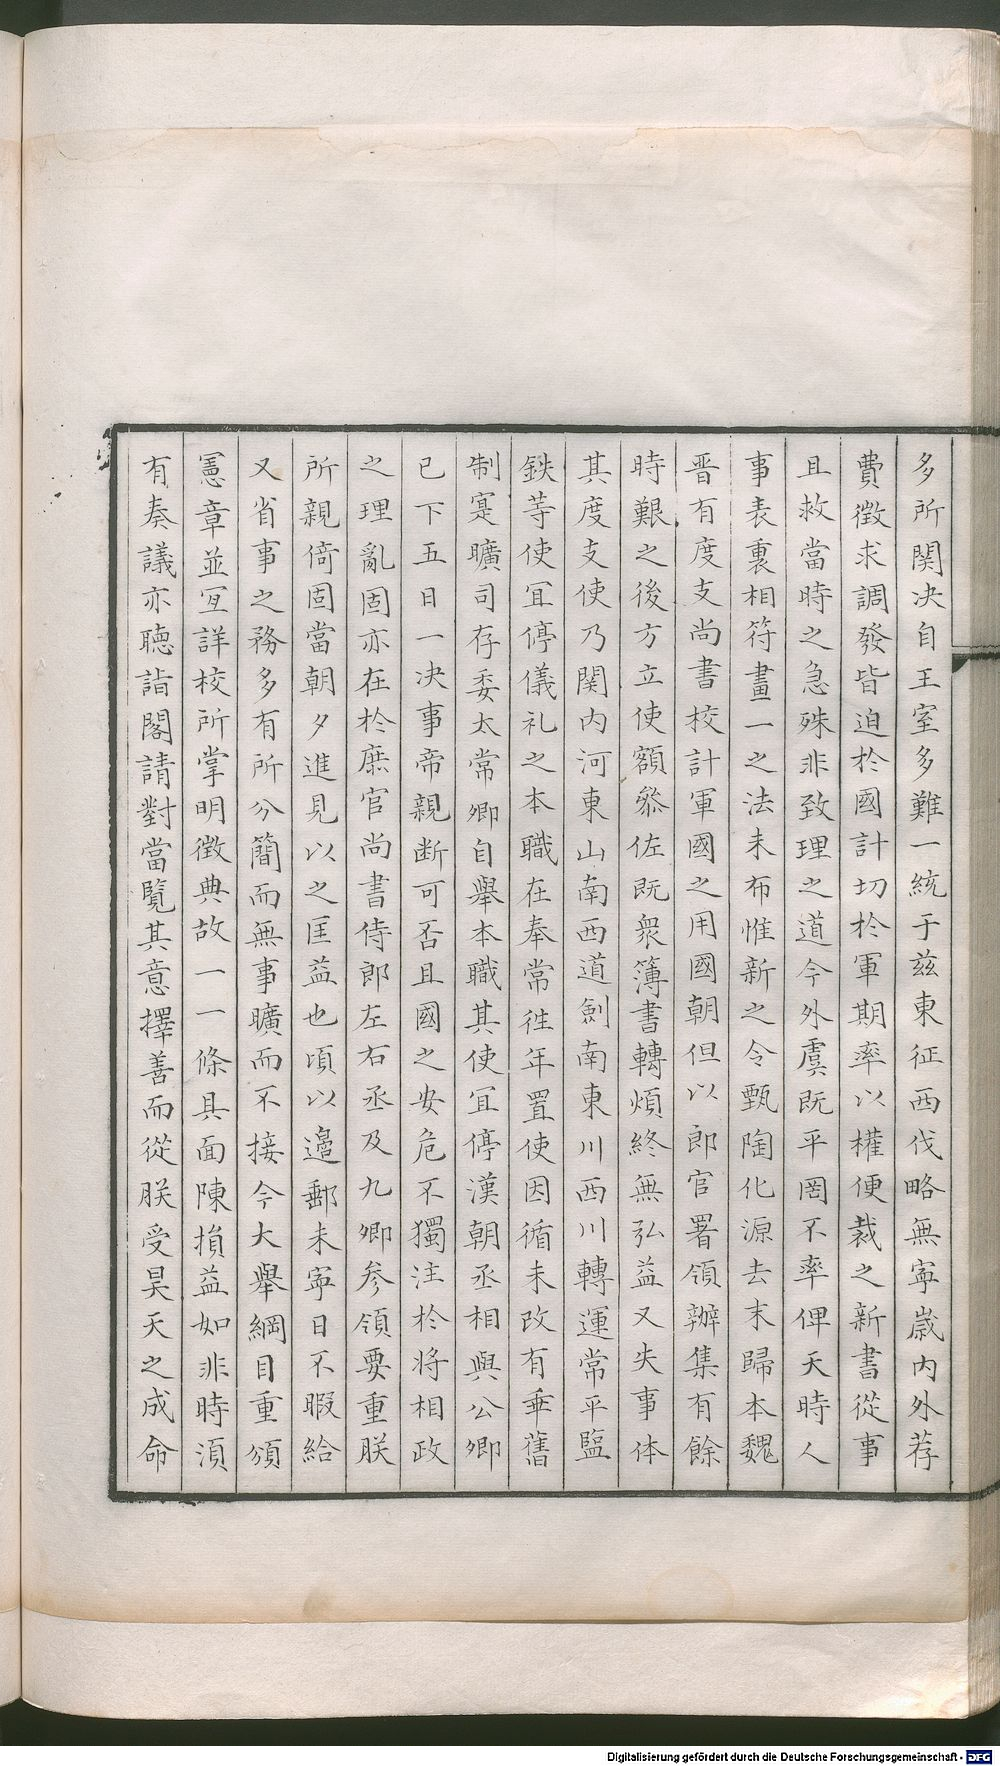 多所関决自王室多難一統于兹東征西伐略無寧歲内外荐
費徴求調發皆迫於國計切於軍期率以權便裁之新書從事
且救當時之急殊非致理之道今外虞既平罔不率俾天時人
事表裏相符畫一之法未布惟新之令甄陶化源去末歸本魏
晋有度支尚書校計軍國之用國朝但以郎官署領辦集有餘
時艱之後方立使額叅佐既衆簿書轉煩終無弘益又失事体
其度支使乃関内河東山南西道劍南東川西川轉運常平監
鉄等使冝停儀礼之本職在奉常徃年置使因循未改有乖舊
制寔曠司存委太常卿自舉本職其使冝停漢朝丞相與公卿
已下五日一决事帝親断可否且國之安危不獨注於将相政
之理亂固亦在於庶官尚書侍郎左右丞及九卿参領要重朕
所親倚固當朝夕進見以之匡益也頃以邉郵未寧日不暇給
又省事之務多有所分簡而無事曠而不接今大舉綱目重頒
憲章並冝詳校所掌明徴典故一一條具面陳損益如非時湏
有奏議亦聴詣閣請對當覽其意擇善而從朕受昊天之成命
Digitalisierung gefördert durch die Deutsche Forschungsgemeinschaft - DFG